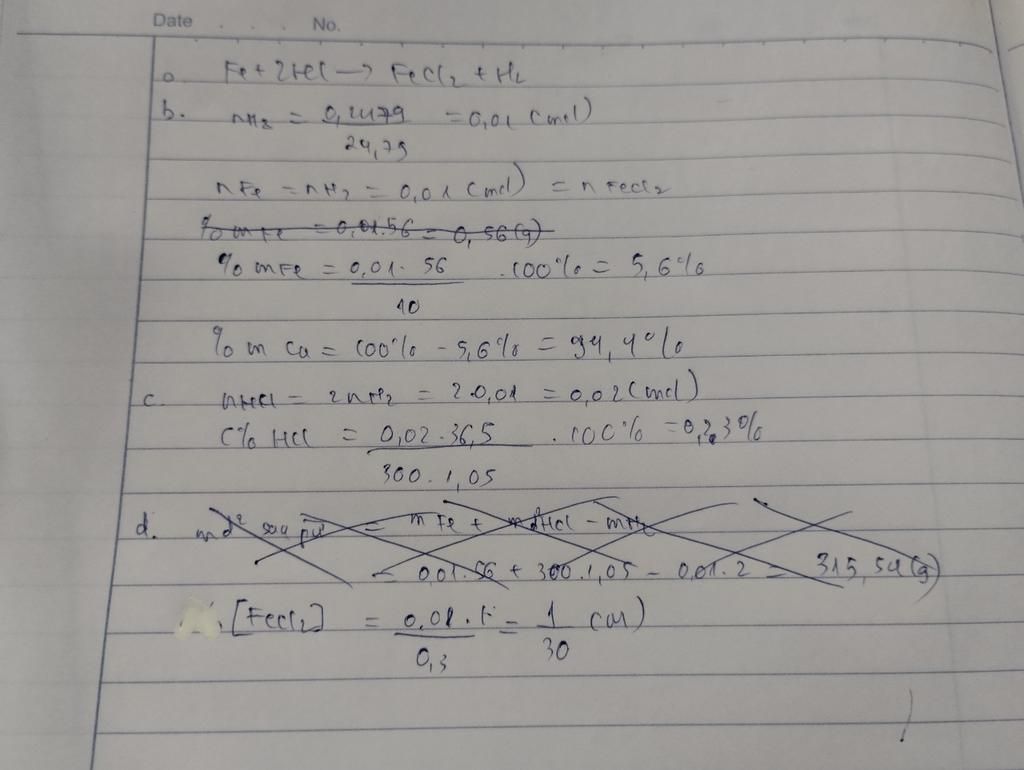 Date . . . . No.
a. Fe + 2HCl → FeCl2 + H2
b. nH2 = 0,2479 / 24,79 = 0,01 (mol)
nFe = nH2 = 0,01 (mol) = nFeCl2
% mFe = 0,01.56 = 0,56 (g)
% mFe = 0,01. 56 / 10 . 100% = 5,6%
% m Cu = 100% - 5,6% = 94,4%
c. nHCl = 2nH2 = 2.0,01 = 0,02 (mol)
C% HCl = 0,02.36,5 / 300.1,05 . 100% = 0,23%
d. md² sau pư = mFe + mdHCl - mH2
= 0,01.56 + 300.1,05 - 0,01.2 = 315,54 (g)
[FeCl2] = 0,01 / 0,3 = 1 / 30 (M)